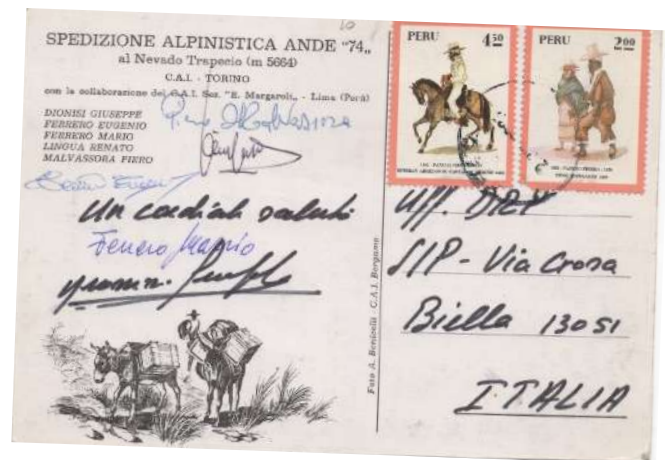 10
SPEDIZIONE ALPINISTICA ANDE "74„
al Nevado Trapecio (m 5664)
C.A.I. - TORINO
con la collaborazione del C.A.I. Sez. "E. Margaroli„ - Lima (Perù)
DIONISI GIUSEPPE
FERRERO EUGENIO
FERRERO MARIO
LINGUA RENATO
MALVASSORA PIERO
Piero Malvassora
Un cordiale saluti
Ferrero Mario
Foto A. Bonicelli - C.A.I. Bergamo
PERU 4.50
PERU 2.00
Uff. DRY
SIP - Via Crosa
Biella 13051
ITALIA